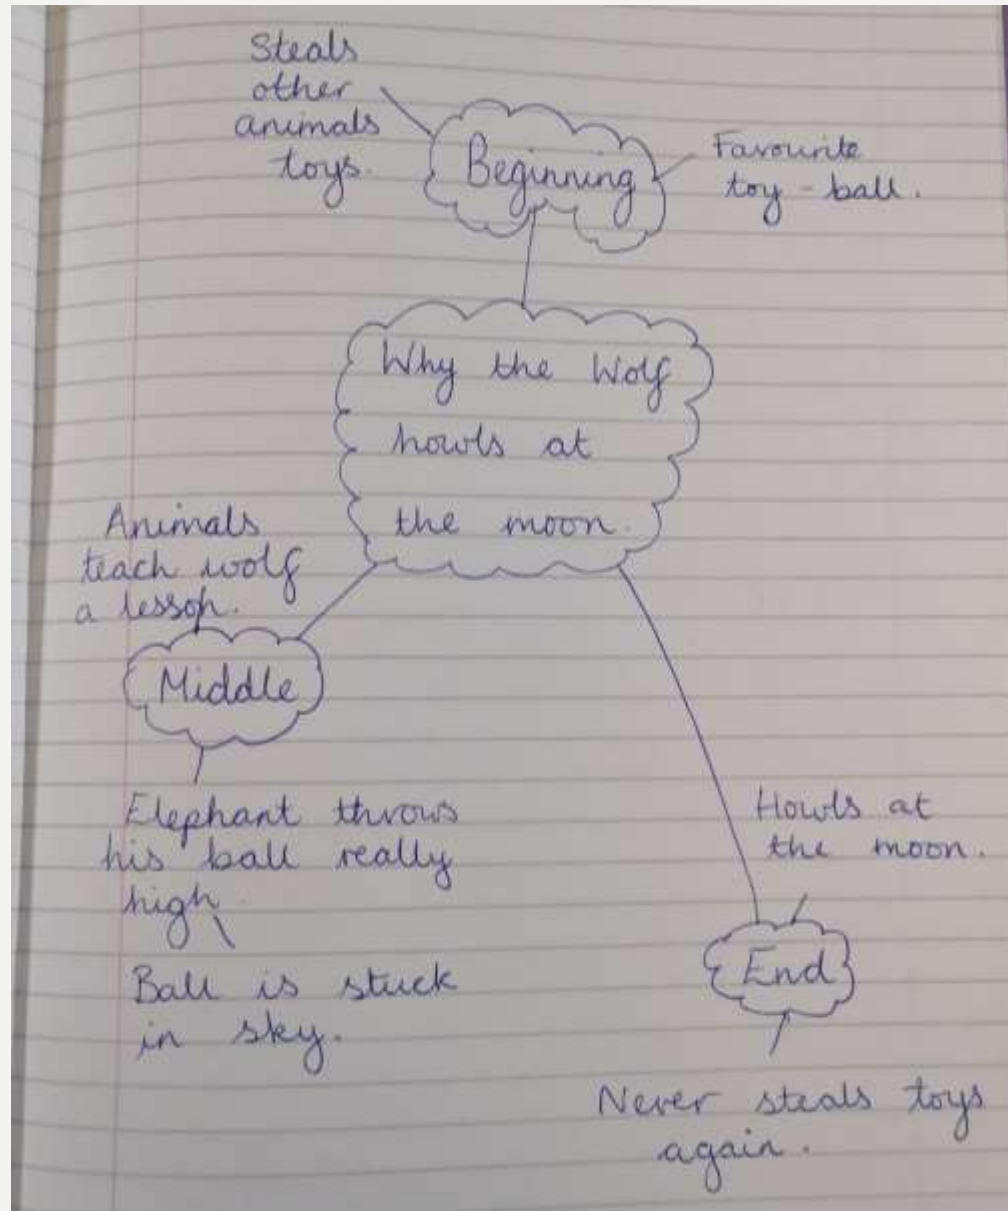 Steals
other
animals
toys.
Beginning
Favourite
toy - ball.
Why the Wolf
howls at
the moon.
Animals
teach wolf
a lesson.
Middle
Elephant throws
his ball really
high
Ball is stuck
in sky.
Howls at
the moon.
End
Never steals toys
again.